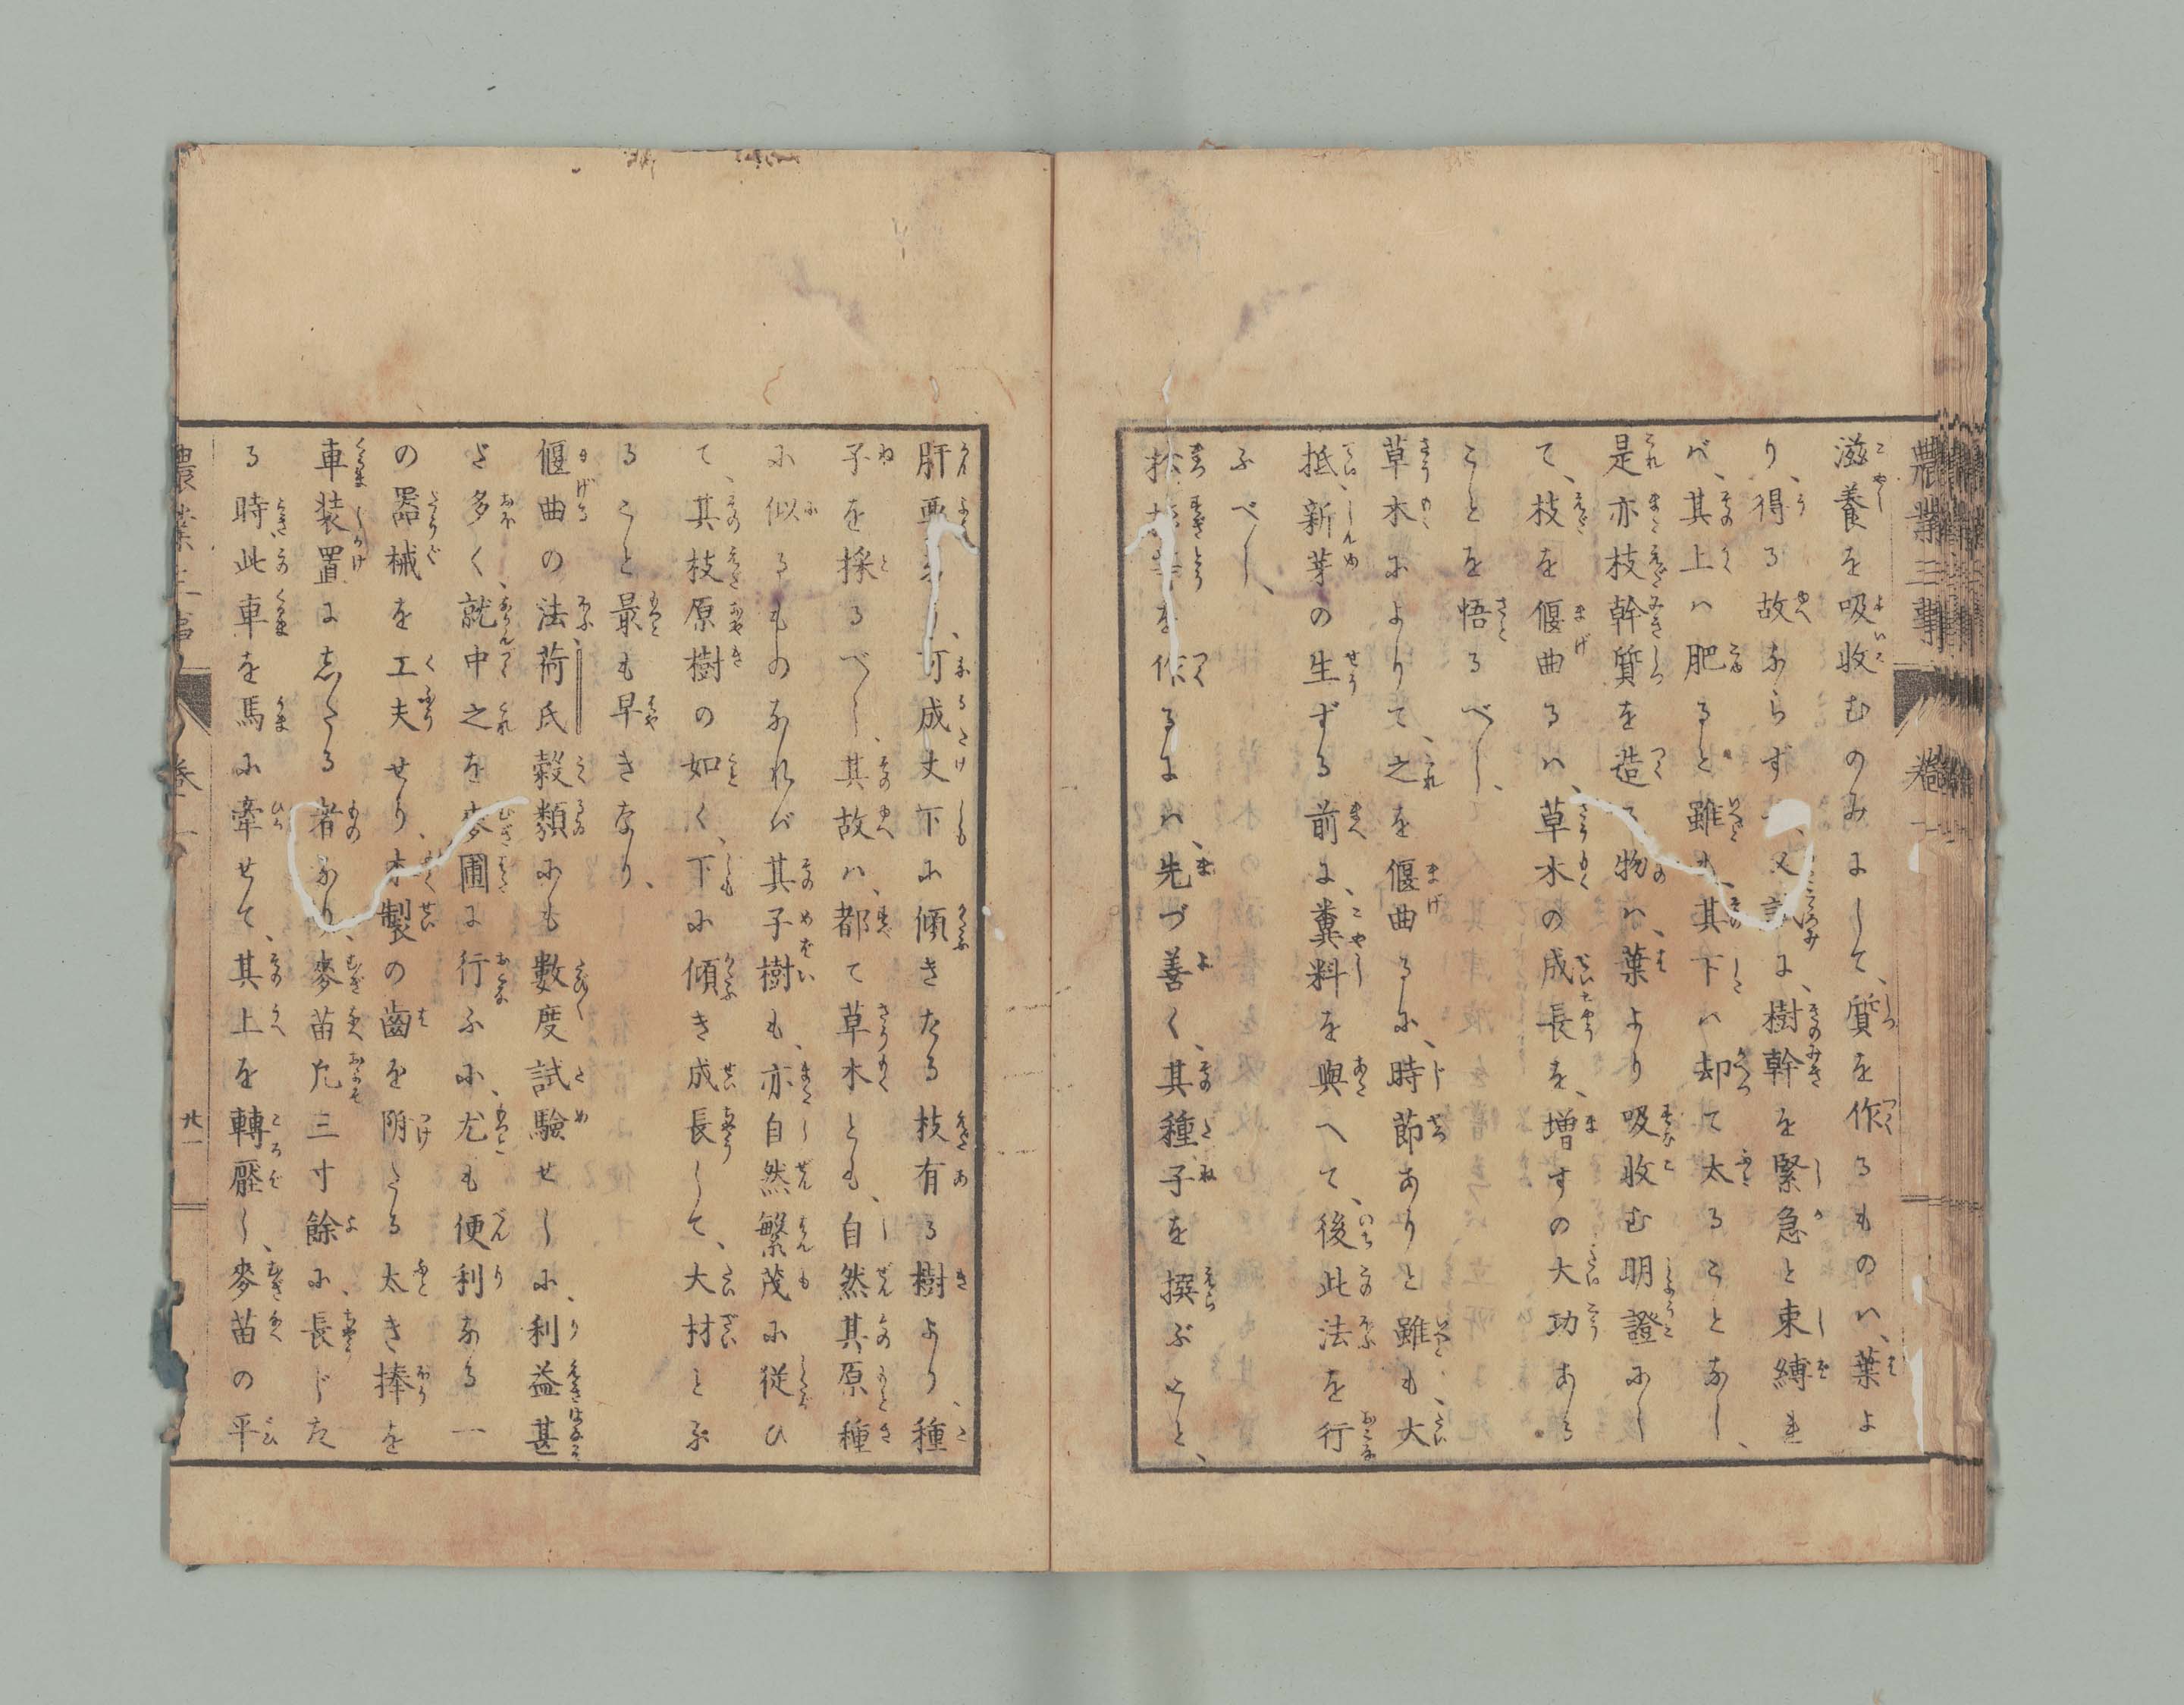 農業三事 卷一
滋養を吸收むのみにして、質を作るものハ、葉よ
り、得る故ならずや、又試に、樹幹を緊急と束縛れ
バ、其上ハ肥ると雖も、其下ハ却て太ることなし、
是亦枝幹質を造る物ハ、葉より吸收む明證にし
て、枝を偃曲るハ、草木の成長を、増すの大功ある
ことを悟るべし、
草木によりて、之を偃曲るに、時節ありと雖も、大
抵、新芽の生ずる前に、糞料を與へて、後此法を行
ふべし、
を作るにハ、先づ善く、其種子を撰ぶこと、
肝要、可成丈下に傾きたる枝有る樹より、種
子を採るべし、其故ハ、都て草木とも、自然其原種
に似るものなれバ其子樹も、亦自然繁茂に從ひ
て、其枝原樹の如く、下に傾き成長して、大材とな
ること最も早きなり、
偃曲の法荷氏穀類にも數度試驗せしに、利益甚
ど多く、就中之を麥圃に行ふに、尤も便利なる一
の器械を工夫せり、木製の齒を附たる太き捧を
車装置に志たる者なり、麥苗凡三寸餘に、長じた
る時此車を馬に牽せて、其上を轉壓し、麥苗の平
農業三事 卷一 廿一